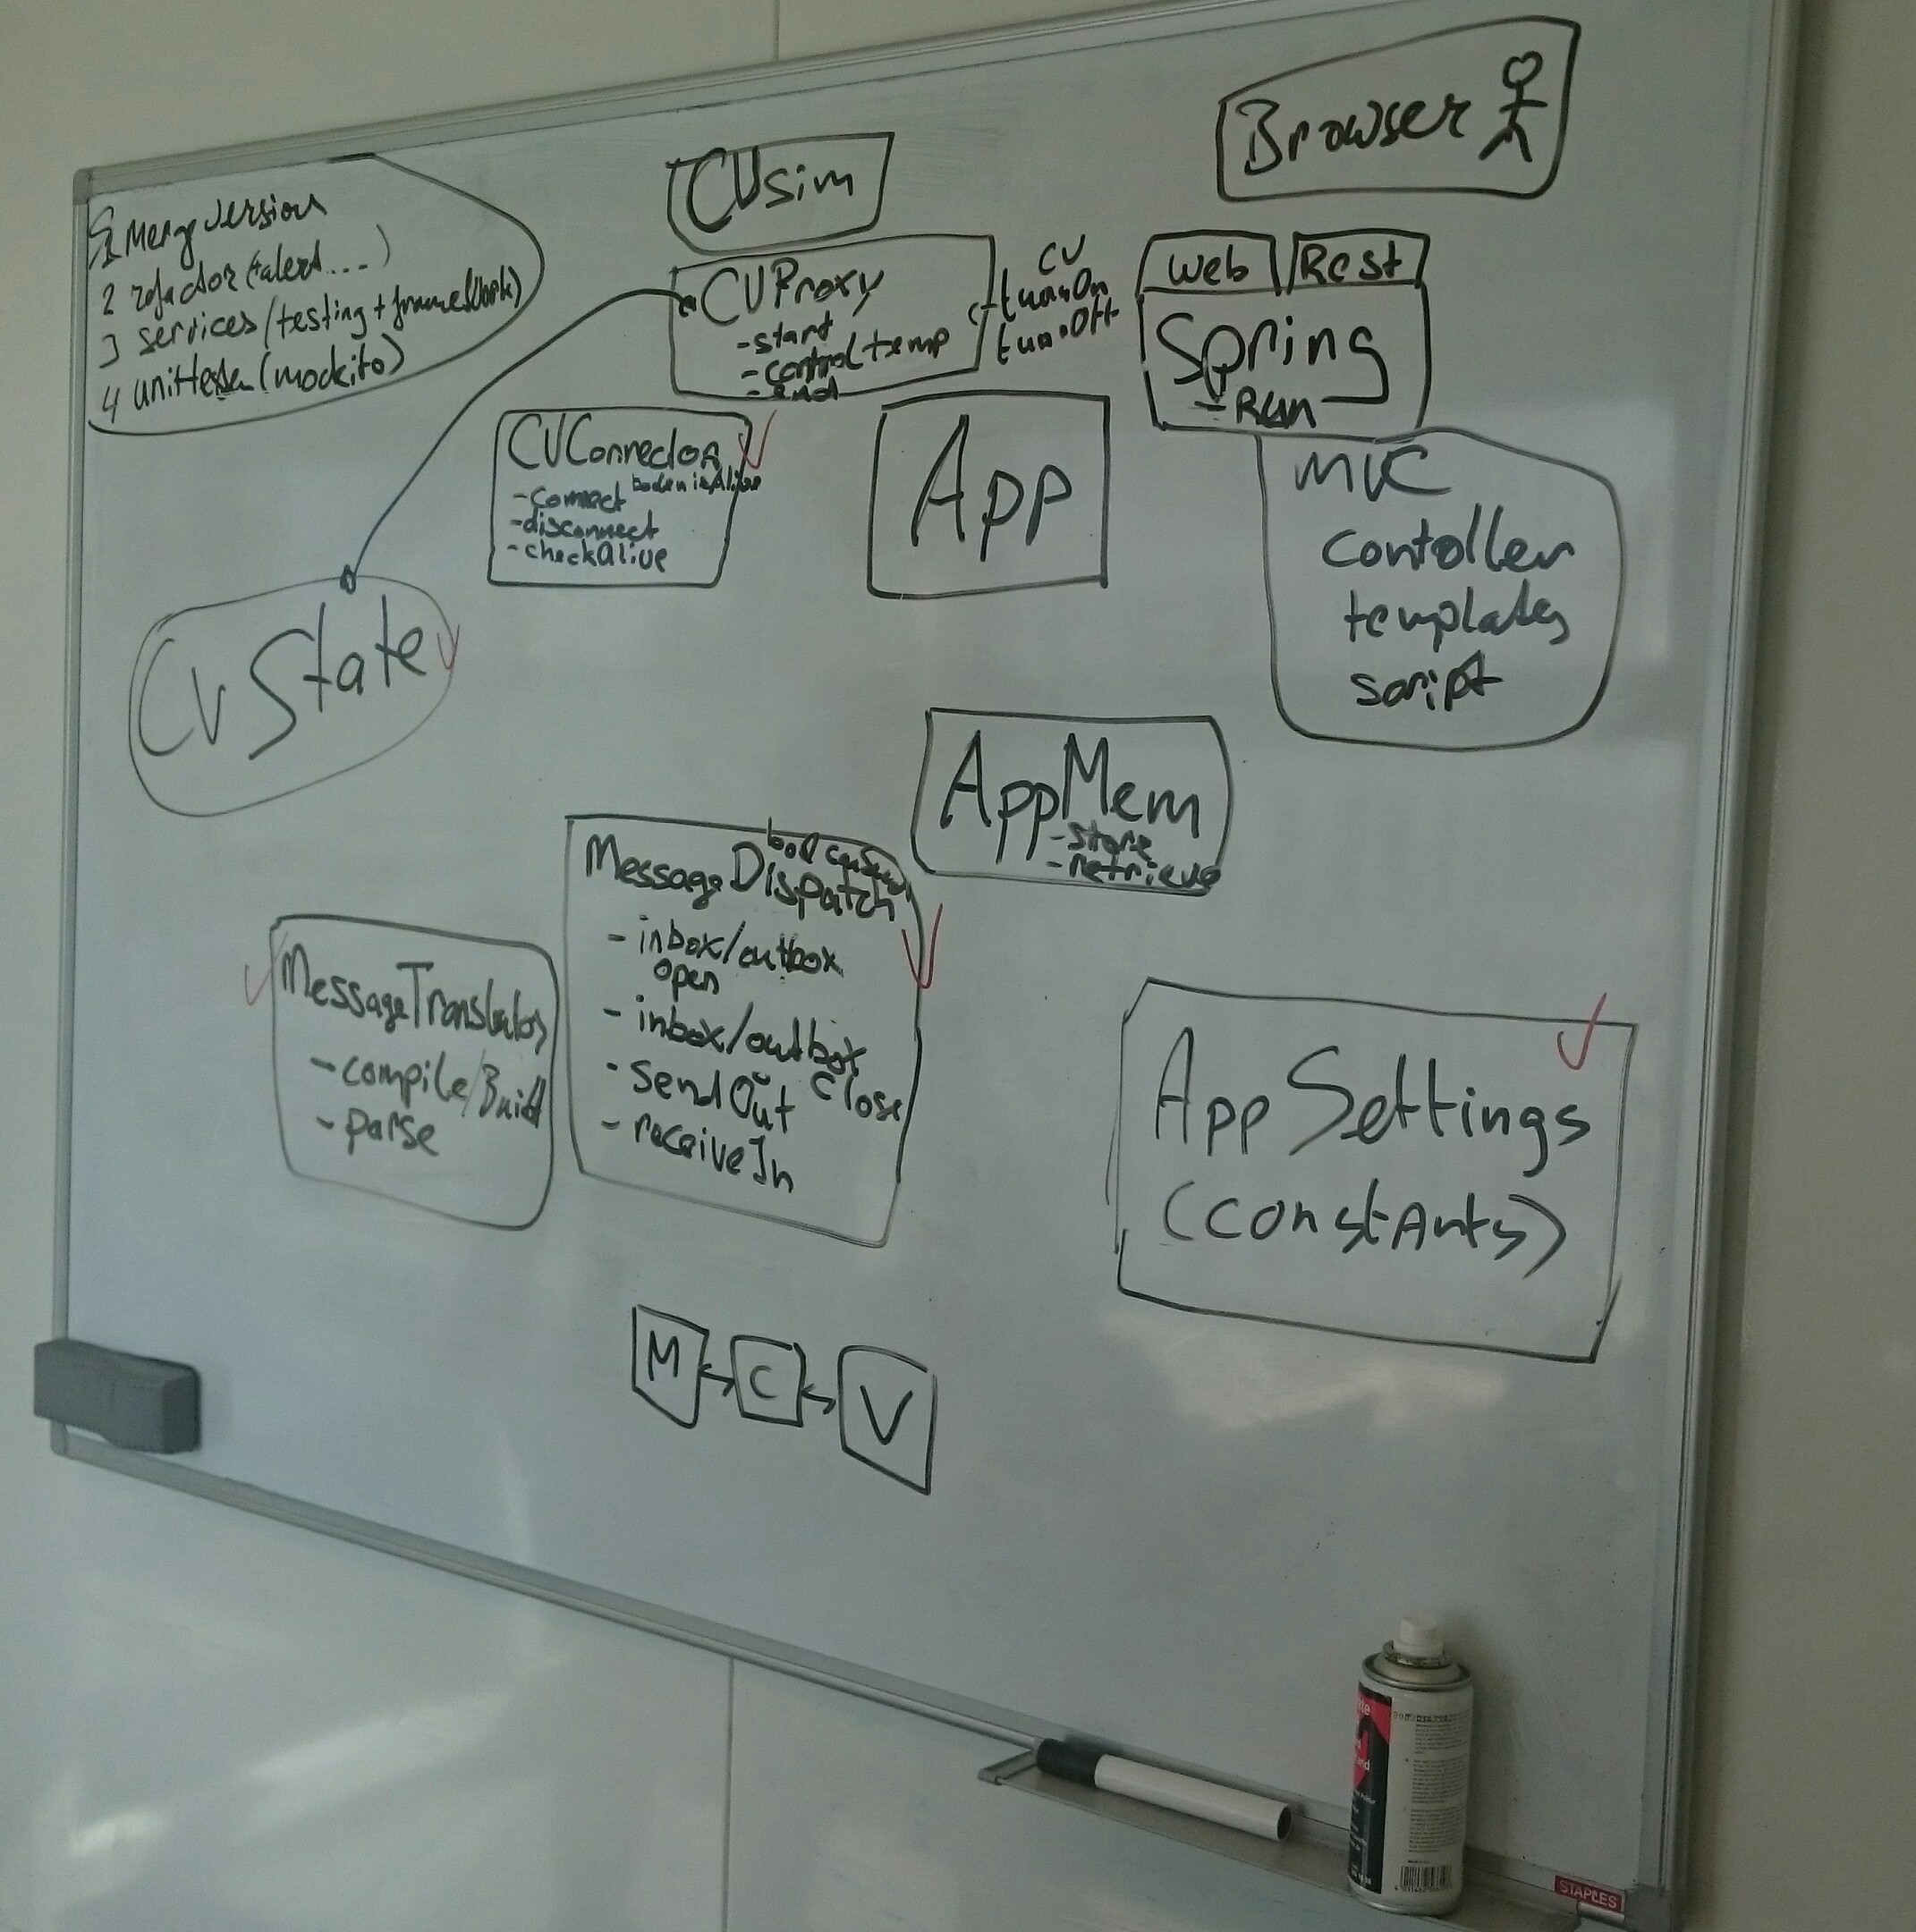 1 Merge version
2 refactor (alert....)
3 services/testing + framework)
4 unittesten (mockito)
CVsim
Browser
CVProxy
-start
-control temp
-end
CV
turnOn
turnOff
Web
Rest
Spring
-Run
CVConnector
-connect
-disconnect
-checkalive
App
MVC
contoller
templates
script
CV State
AppMem
-store
-retrieve
MessageDispatch
- inbox/outbox
open
- inbox/outbox
close
- sendOut
- receiveIn
MessageTranslator
- compile/Build
- parse
App Settings
(constants)
M
C
V
STAPLES